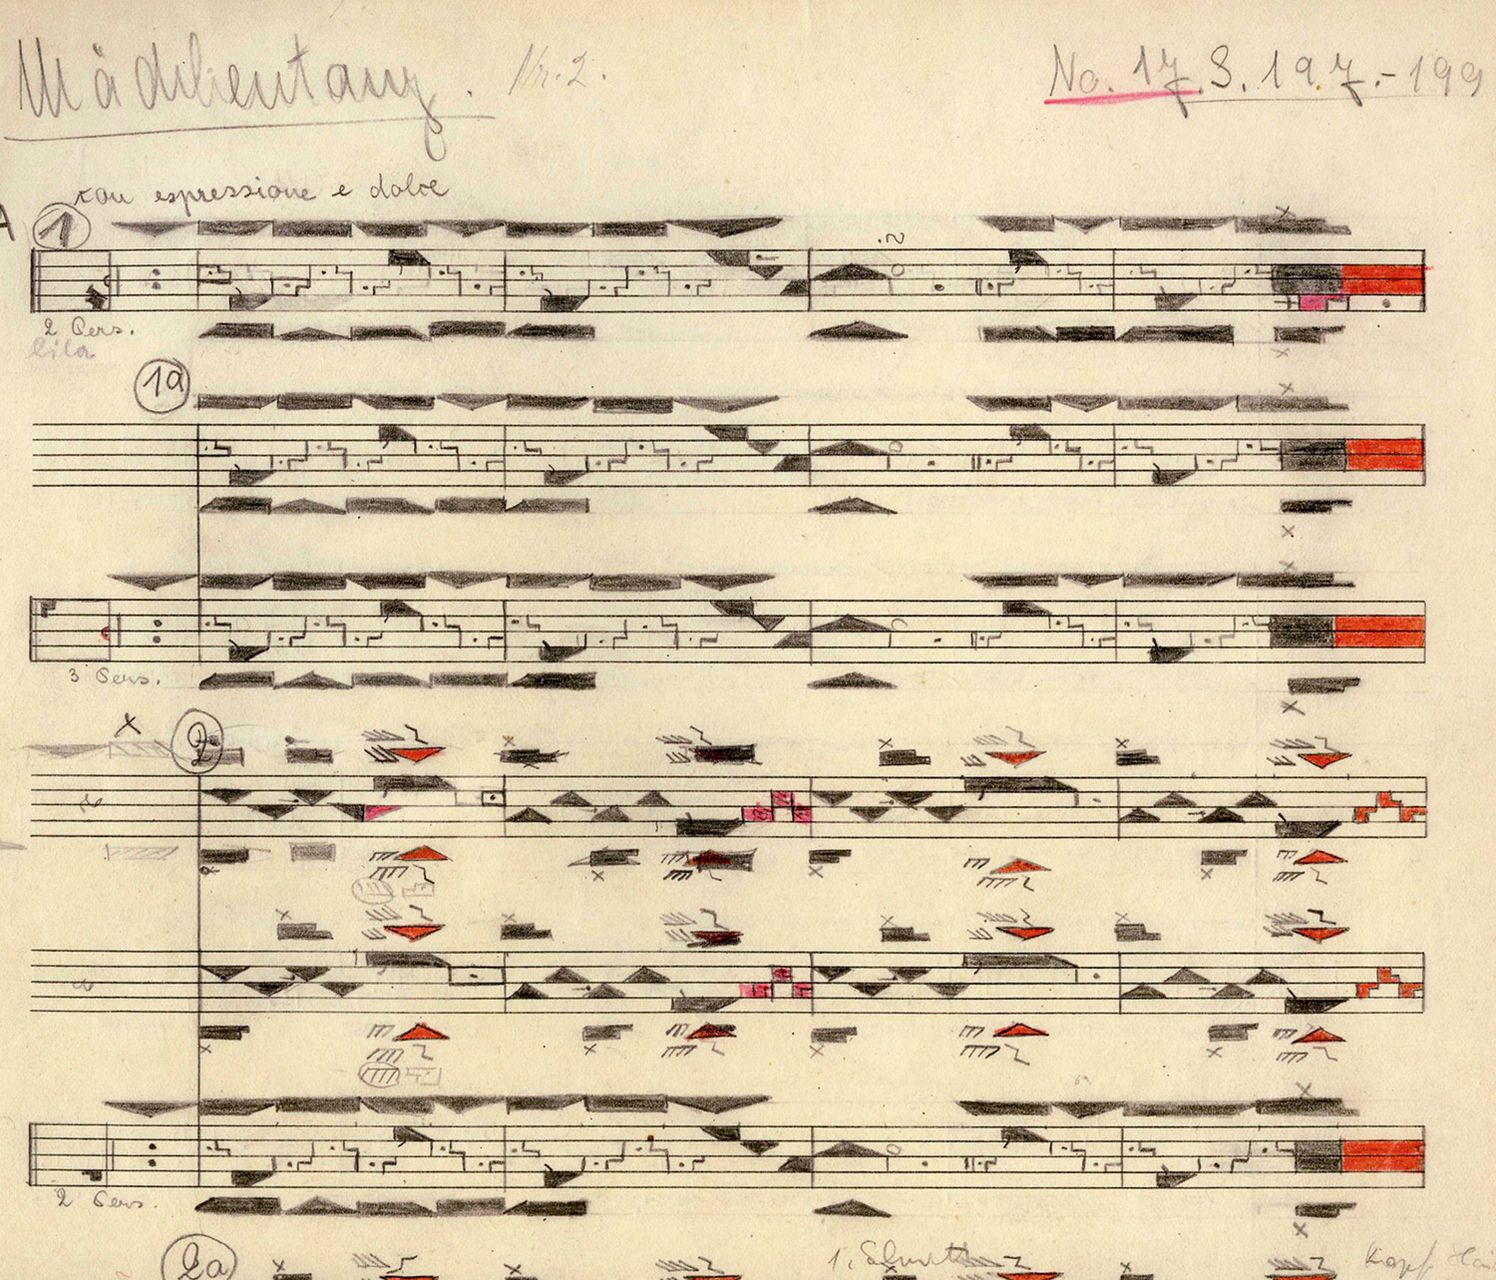 Mädchentanz. Nr. 2.
No. 17. S. 197.-199
con espressione e dolce
A
1
2 Pers.
lila
1a
3 Pers.
2
2 Pers.
2a
1.
Kopf